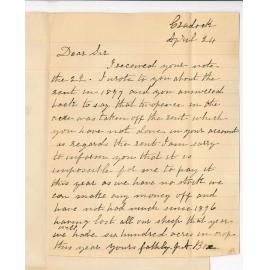 Cradock
April 24
Dear Sir
I received your note
the 22. I wrote to you about the
rent in 1897 and you answered
back to say that to opence in the
acre was taken off the rent which
you have not done in your account
as regards the rent I am sorry
to inform you that it is
impossible for me to pay it
this year as we have no stock we
can make any money off and
have not had much since 1896
having lost all our sheep that year
we have well six hundred acres in crop
this year yours fathfly J. A.